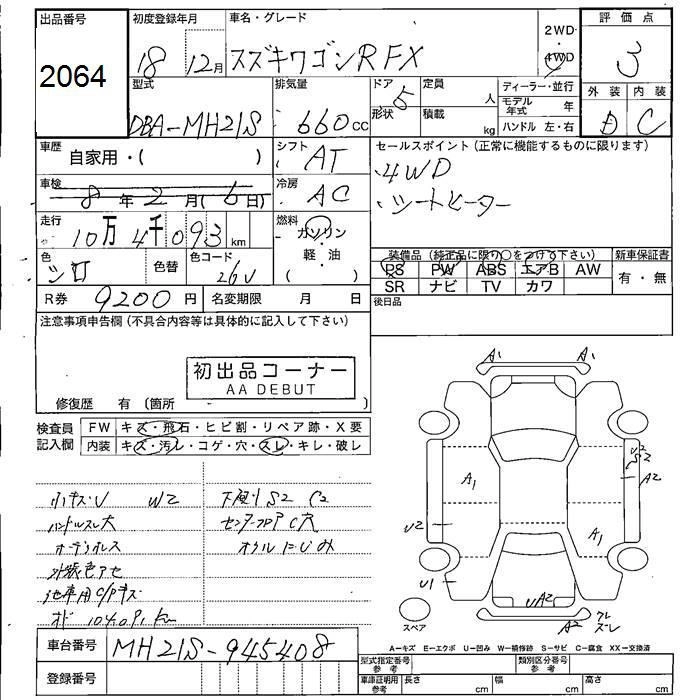 出品番号
2064
初度登録年月
18 12月
車名・グレード
スズキワゴンR FX
2WD
4WD
評価点
3
外装 内装
D C
型式
DBA-MH21S
排気量
660cc
ドア
5
形状
定員
人
積載
kg
ディーラー・並行
モデル年式 年
ハンドル 左・右
車歴
自家用・( )
シフト
AT
セールスポイント (正常に機能するものに限ります)
・4WD
・シートヒーター
車検
8年2月(6日)
冷房
AC
走行
10万4千093km
燃料
ガソリン
・
軽・油
( )
色
シロ
色替
色コード
26U
装備品 (純正品に限り○をつけて下さい)
PS PW ABS エアB AW
SR ナビ TV カワ
新車保証書
有・無
R券 9200円
名変期限 月 日
後日品
注意事項申告欄 (不具合内容等は具体的に記入して下さい)
初出品コーナー
AA DEBUT
修復歴 有 (箇所 )
検査員記入欄
FW キズ・飛石・ヒビ割・リペア跡・X要
内装 キズ・汚レ・コゲ・穴・スレ・キレ・破レ
小キズ・U W2
ハンドルスレ大
オーデオレス
外装色アセ
オド 104091km
下廻りS2 C2
C穴
オイルにじみ
A1 A1
A1
A1
U2
S2
A2
U2
U1
UA2
A2
スペア
A-キズ E-エクボ U-凹み W-補修跡 S-サビ C-腐食 XX-交換済
車台番号
MH21S-945408
登録番号
型式指定番号 参考
類別区分番号 参考
車庫証明用 参考
長さ cm
幅 cm
高さ cm